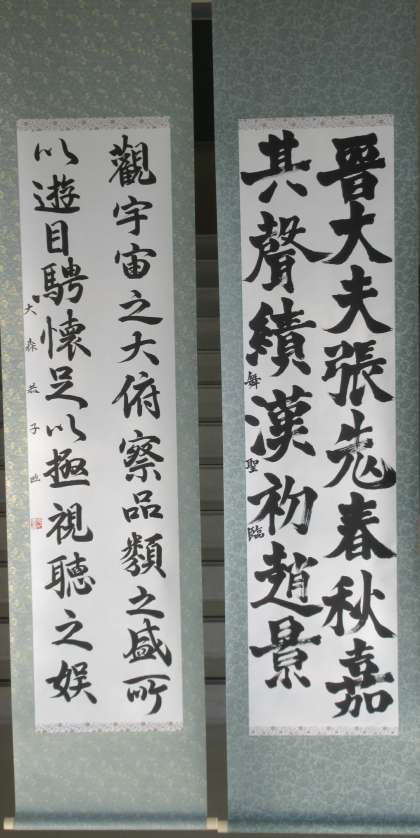 晉大夫張老春秋嘉
其聲績漢初趙景
聖臨
觀宇宙之大俯察品類之盛所
以遊目騁懷足以極視聽之娛
大森 子臨